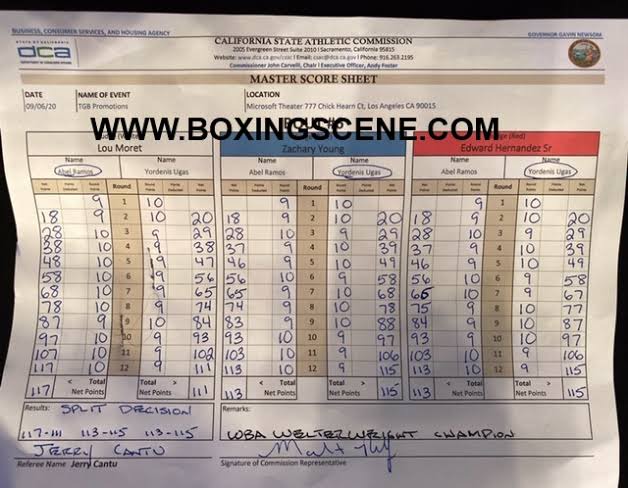 BUSINESS, CONSUMER SERVICES, AND HOUSING AGENCY GOVERNOR GAVIN NEWSOM
STATE OF CALIFORNIA
dca
DEPARTMENT OF CONSUMER AFFAIRS
CALIFORNIA STATE ATHLETIC COMMISSION
2005 Evergreen Street Suite 2010 | Sacramento, California 95815
Website: www.dca.ca.gov/csac | Email: csac@dca.ca.gov | Phone: 916.263.2195
Commissioner John Carvelli, Chair | Executive Officer, Andy Foster
MASTER SCORE SHEET
DATE NAME OF EVENT LOCATION
09/06/20 TGB Promotions Microsoft Theater 777 Chick Hearn Ct, Los Angeles CA 90015
WWW.BOXINGSCENE.COM
Lou Moret Zachary Young Edward Hernandez Sr
Name Name Name Name Name Name
Abel Ramos Yordenis Ugas Abel Ramos Yordenis Ugas Abel Ramos Yordenis Ugas
Net Points Points Deducted Round Points Round Round Points Points Deducted Net Points Net Points Points Deducted Round Points Round Round Points Points Deducted Net Points Net Points Points Deducted Round Points Round Round Points Points Deducted Net Points
9 1 10 9 1 10 9 1 10
18 9 2 10 20 18 9 2 10 20 18 9 2 10 20
28 10 3 9 29 28 10 3 9 29 28 10 3 9 29
38 10 4 9 38 37 9 4 10 39 37 9 4 10 39
48 10 5 9 47 46 9 5 10 49 46 9 5 10 49
58 10 6 9 56 56 10 6 9 58 56 10 6 9 58
68 10 7 9 65 65 9 7 10 68 65 10 7 9 67
78 10 8 9 74 74 9 8 10 78 75 9 8 10 77
87 9 9 10 84 83 9 9 10 88 84 9 9 10 87
97 10 10 9 93 93 10 10 9 97 93 9 10 10 97
107 10 11 9 102 103 10 11 9 106 103 10 11 9 106
117 10 12 9 111 113 10 12 9 115 113 10 12 9 115
117 < Total Net Points Total > Net Points 111 113 < Total Net Points Total > Net Points 115 113 < Total Net Points Total > Net Points 115
Results: SPLIT DECISION Remarks:
117-111 113-115 113-115 WBA WELTERWEIGHT CHAMPION
JERRY CANTU
Referee Name Jerry Cantu Signature of Commission Representative